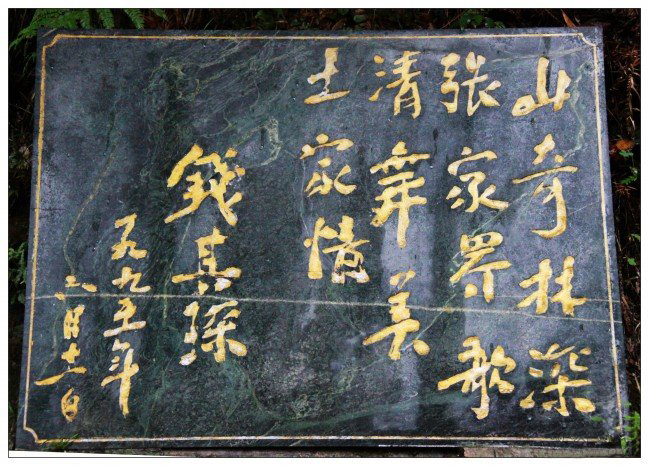 山奇林深
张家界歌
清舞美
土家情
錢其琛
一九九五年
八月十一日